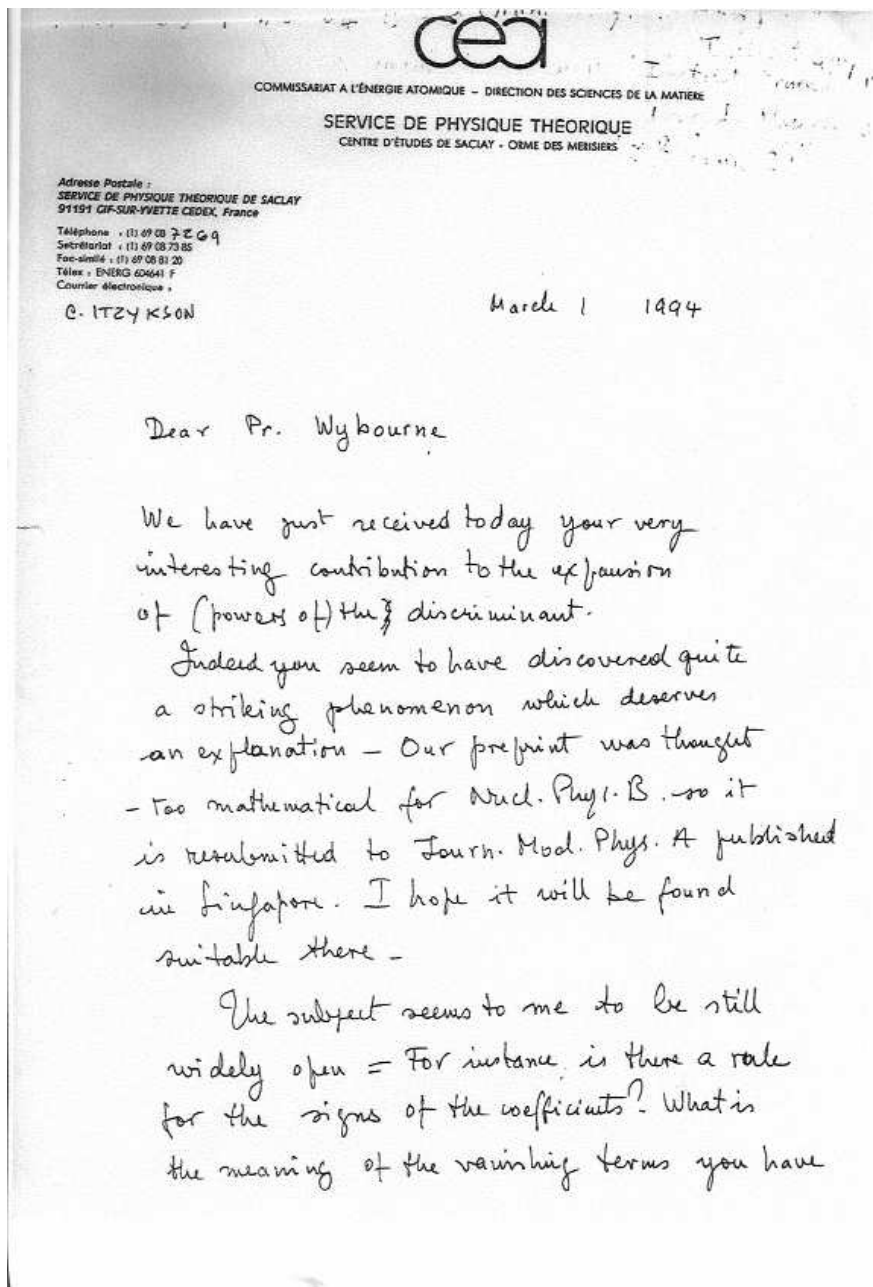 cea
COMMISSARIAT A L'ÉNERGIE ATOMIQUE – DIRECTION DES SCIENCES DE LA MATIÈRE
SERVICE DE PHYSIQUE THÉORIQUE
CENTRE D'ÉTUDES DE SACLAY - ORME DES MERISIERS
Adresse Postale :
SERVICE DE PHYSIQUE THÉORIQUE DE SACLAY
91191 GIF-SUR-YVETTE CEDEX, France
Téléphone : (1) 69 08 7269
Secrétariat : (1) 69 08 73 85
Fac-similé : (1) 69 08 81 20
Télex : ENERG 604641 F
Courrier électronique :
C. ITZYKSON
March 1 1994
Dear Pr. Wybourne
We have just received today your very
interesting contribution to the expansion
of (powers of) the discriminant.
Indeed you seem to have discovered quite
a striking phenomenon which deserves
an explanation – Our preprint was thought
- too mathematical for Nucl. Phys. B. so it
is resubmitted to Journ. Mod. Phys. A published
in Singapore. I hope it will be found
suitable there –
The subject seems to me to be still
widely open = For instance is there a rule
for the signs of the coefficients? What is
the meaning of the vanishing terms you have